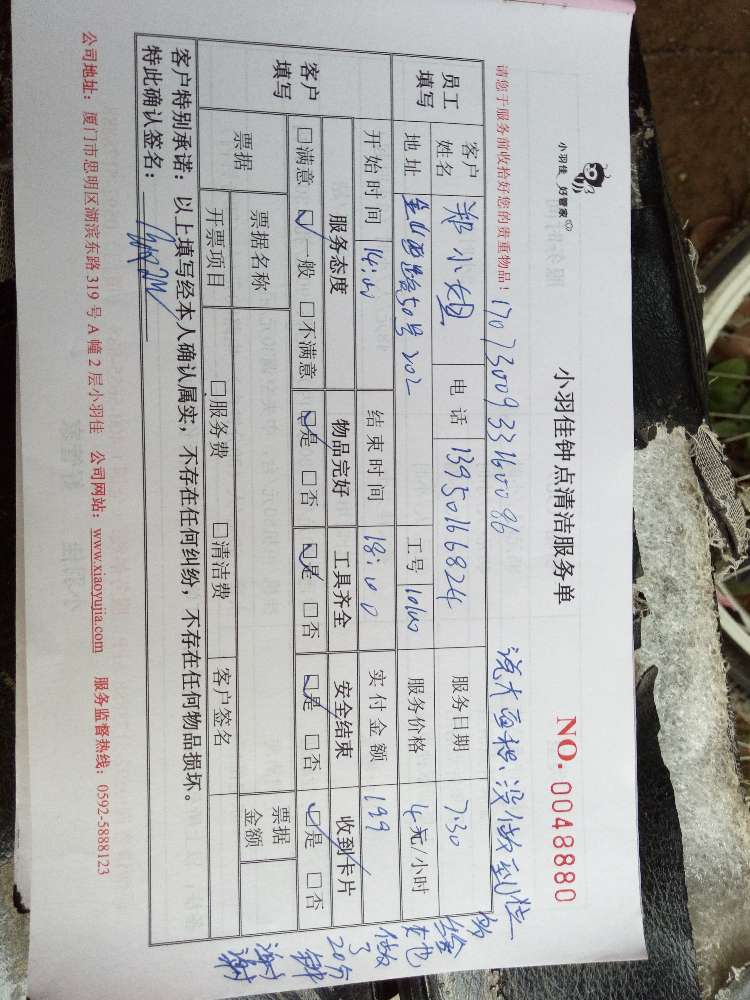 小羽佳_好管家
小羽佳钟点清洁服务单
NO. 0048880
请您于服务前收拾好您的贵重物品!
1707300933160086
说大面积、没做到位
员工填写
客户姓名 郑小姐 电话 13950166824 服务日期 7.30
地址 金山西路50号202 工号 服务价格 4元/小时
客户填写
开始时间 14:00 结束时间 18:00 实付金额 199
服务态度 物品完好 工具齐全 安全结束 收到卡片
□满意 □一般 □不满意 □是 □否 □是 □否 □是 □否 □是 □否
票据 票据名称 票据金额
开票项目 □服务费 □清洁费 客户签名
客户特别承诺:以上填写经本人确认属实,不存在任何纠纷,不存在任何物品损坏。
特此确认签名:
给她做了20分钟
谢谢
公司地址:厦门市思明区湖滨东路 319 号 A 幢 2 层小羽佳 公司网站:www.xiaoyujia.com 服务监督热线:0592-5888123